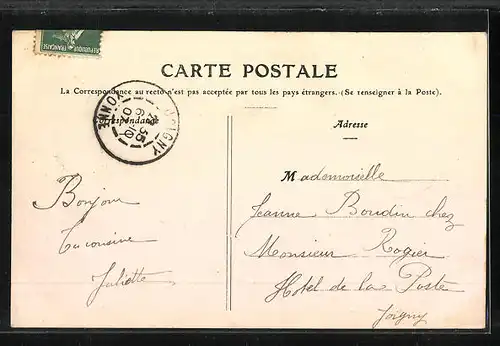 REPUBLIQUE FRANÇAISE
CARTE POSTALE
La Correspondance au recto n'est pas acceptée par tous les pays étrangers. (Se renseigner à la Poste).
Correspondance
JOIGNY
YONNE
Adresse
Bonjour
Ta cousine
Juliette
Mademoiselle
Jeanne Boudin chez
Monsieur Rogier
Hotel de la Poste
Joigny